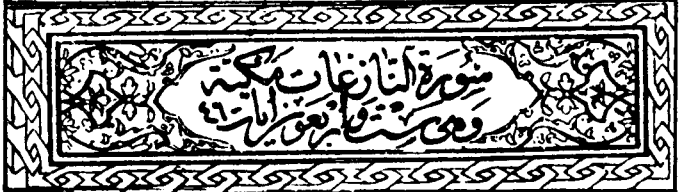 سورة النازعات مكية
وهي ست وأربعون آيات ٤٦